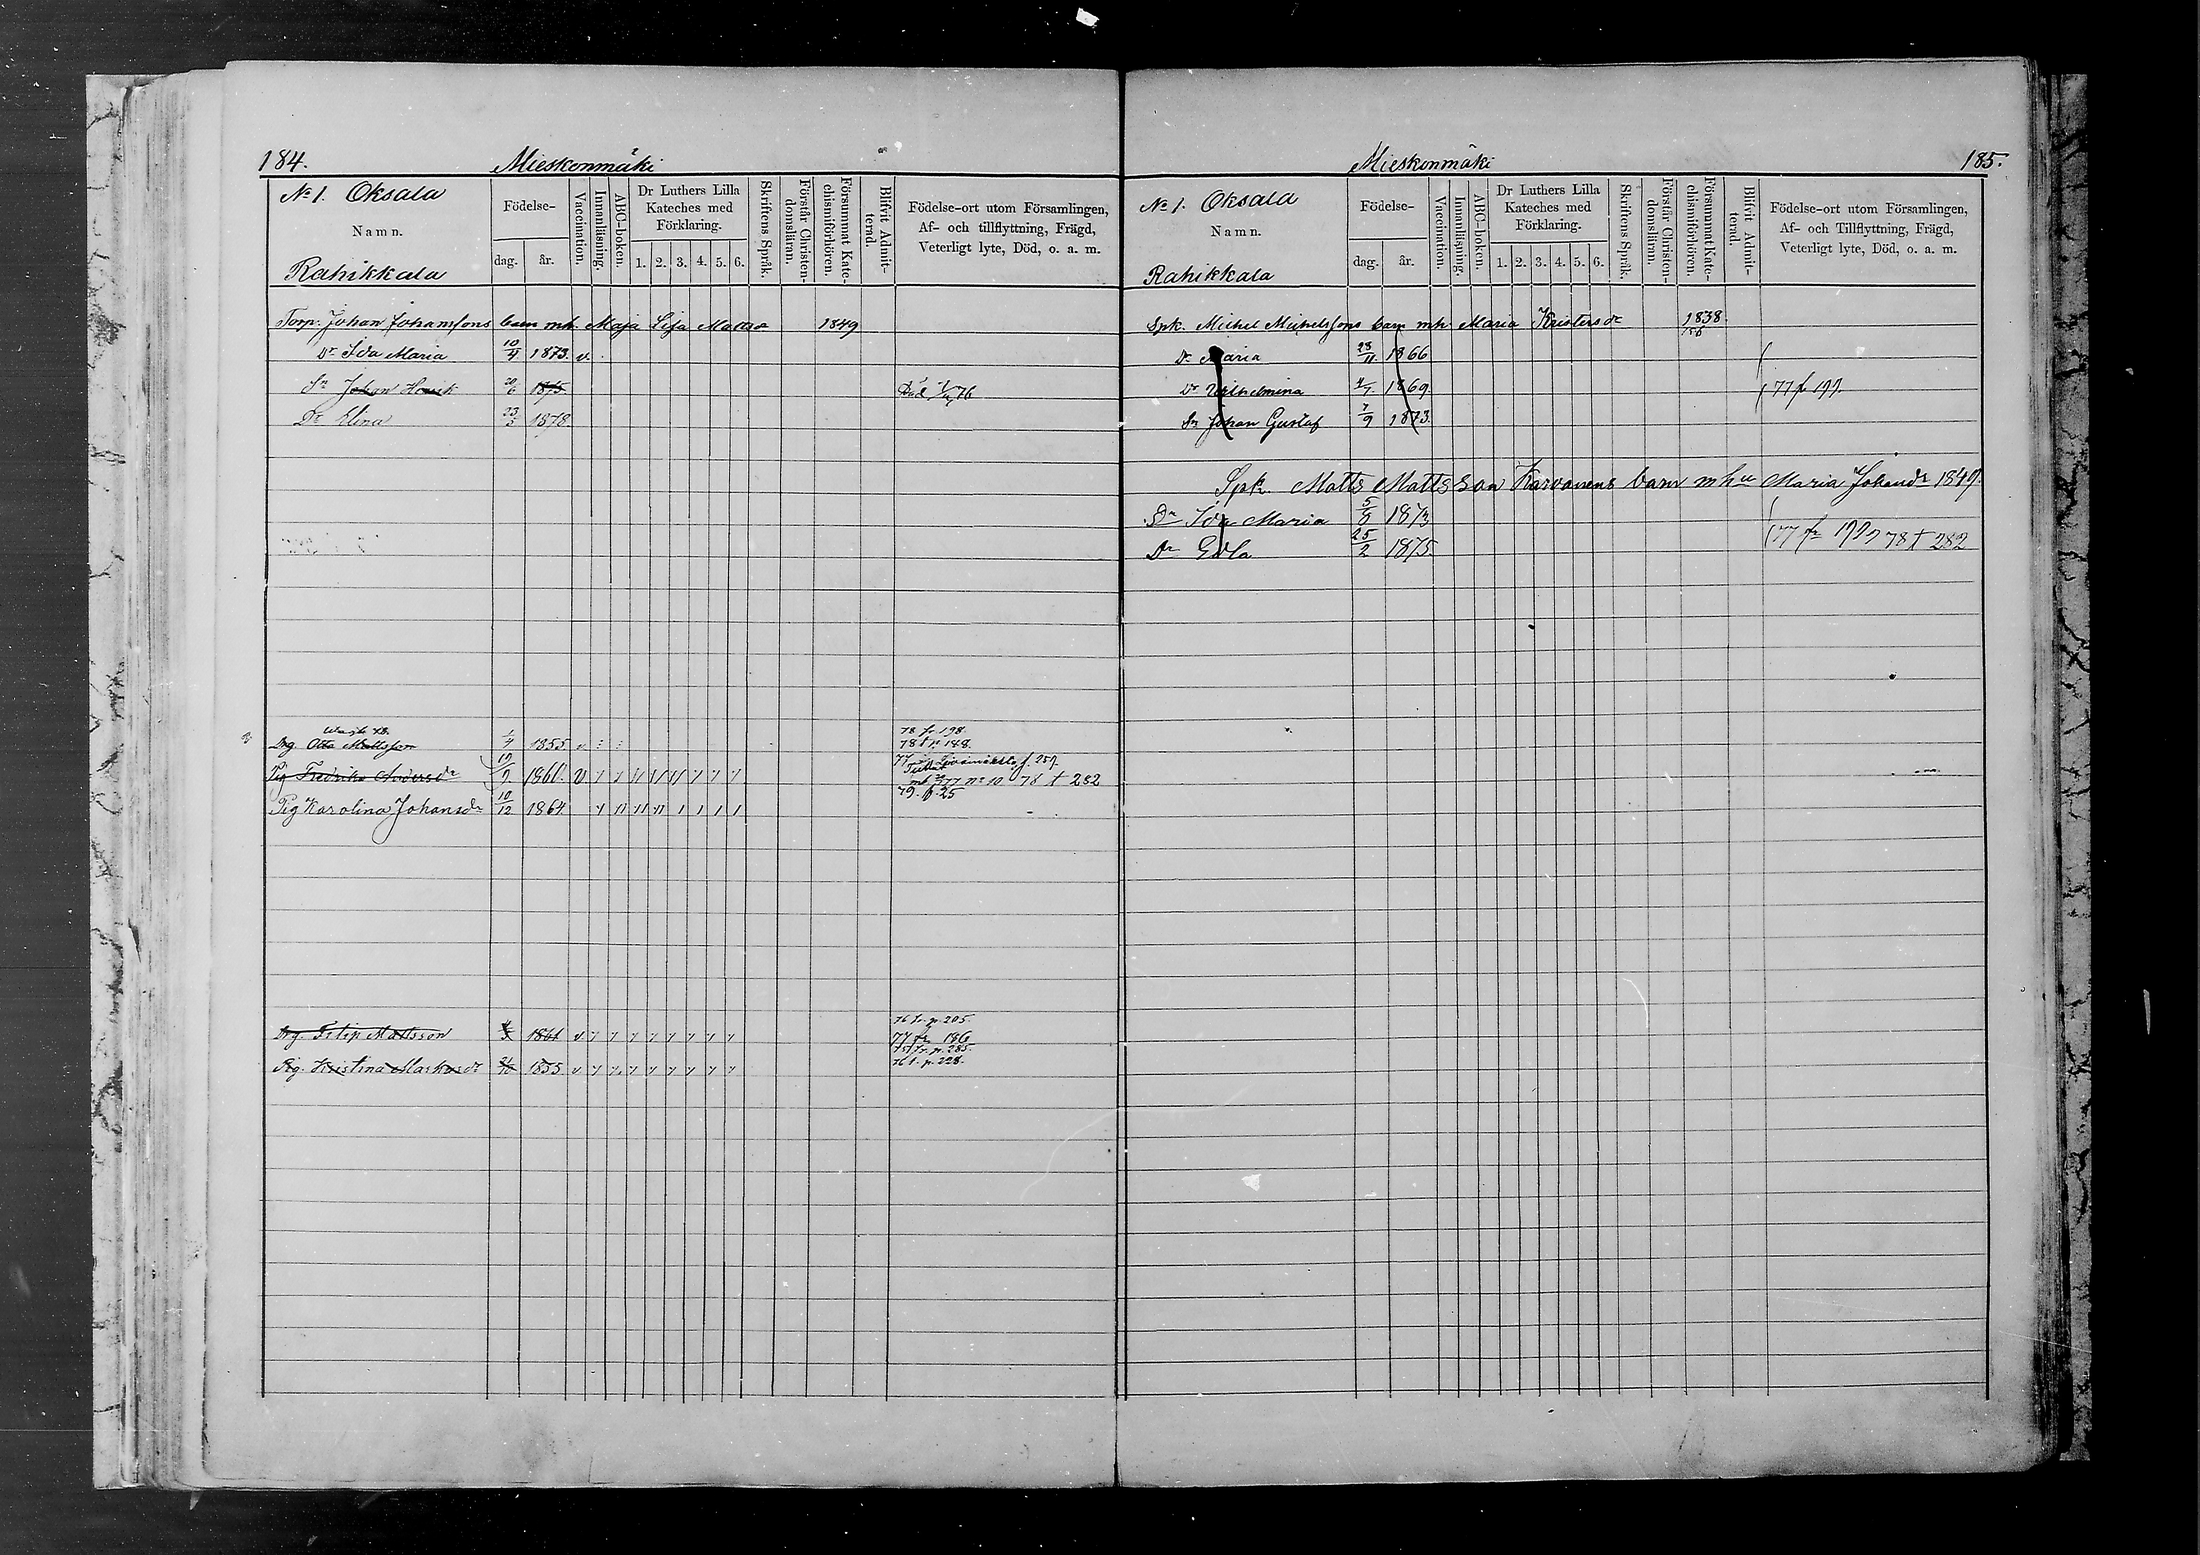 184. Mieskonmäki
№ 1. Oksala
Namn.
Rahikkala
Födelse-
dag. år.
Vaccination.
Innanläsning.
ABC-boken.
Dr Luthers Lilla Kateches med Förklaring.
1. 2. 3. 4. 5. 6.
Skriftens Språk.
Förstår Christen-domsläran.
Försummat Kate-chismiförhören.
Blifvit Admit-terad.
Födelse-ort utom Församlingen,
Af- och tillflyttning, Frägd,
Veterligt lyte, Död, o. a. m.
Torp. Johan Johanssons barn mh. Maja Lisa Mattsd 1849
Dr Ida Maria 10/4 1873. v.
Sn Johan Henrik 20/6 1875. Död 76
Dr Elina 23/3 1878
Drg. Otto Mattsson 1/4 1855 v
78 fr. 198.
78 t. p. 148.
Pig Fredrika Andersdr 19/9 1861. v
f. 259.
77 no 10 78 t 282
Pig Karolina Johansdr 10/12 1864.
79. fr. 25
Drg. Filip Mattsson 1861 v
76 fr. p. 205.
77 fr 186
Pig. Kristina Markusdr 1855. v
75 fr. p. 285.
76 t. p. 228.
Mieskonmäki 185.
№ 1. Oksala
Namn.
Rahikkala
Födelse-
dag. år.
Vaccination.
Innanläsning.
ABC-boken.
Dr Luthers Lilla Kateches med Förklaring.
1. 2. 3. 4. 5. 6.
Skriftens Språk.
Förstår Christen-domsläran.
Försummat Kate-chismiförhören.
Blifvit Admit-terad.
Födelse-ort utom Församlingen,
Af- och Tillflyttning, Frägd,
Veterligt lyte, Död, o. a. m.
Spk. Michel Michelssons barn mh Maria Kristersdr 1838.
Dr Maria 28/11. 1866
Dr Vilhelmina 1869. 77 f 199.
Sn Johan Gustaf 7/9 1873.
Spk. Matts Mattsson Karvanens barn mhu Maria Johansdr 1849.
Dr Ida Maria 5/8 1873
Dr Edla 25/2 1875. 77 fr 199 78 t 282